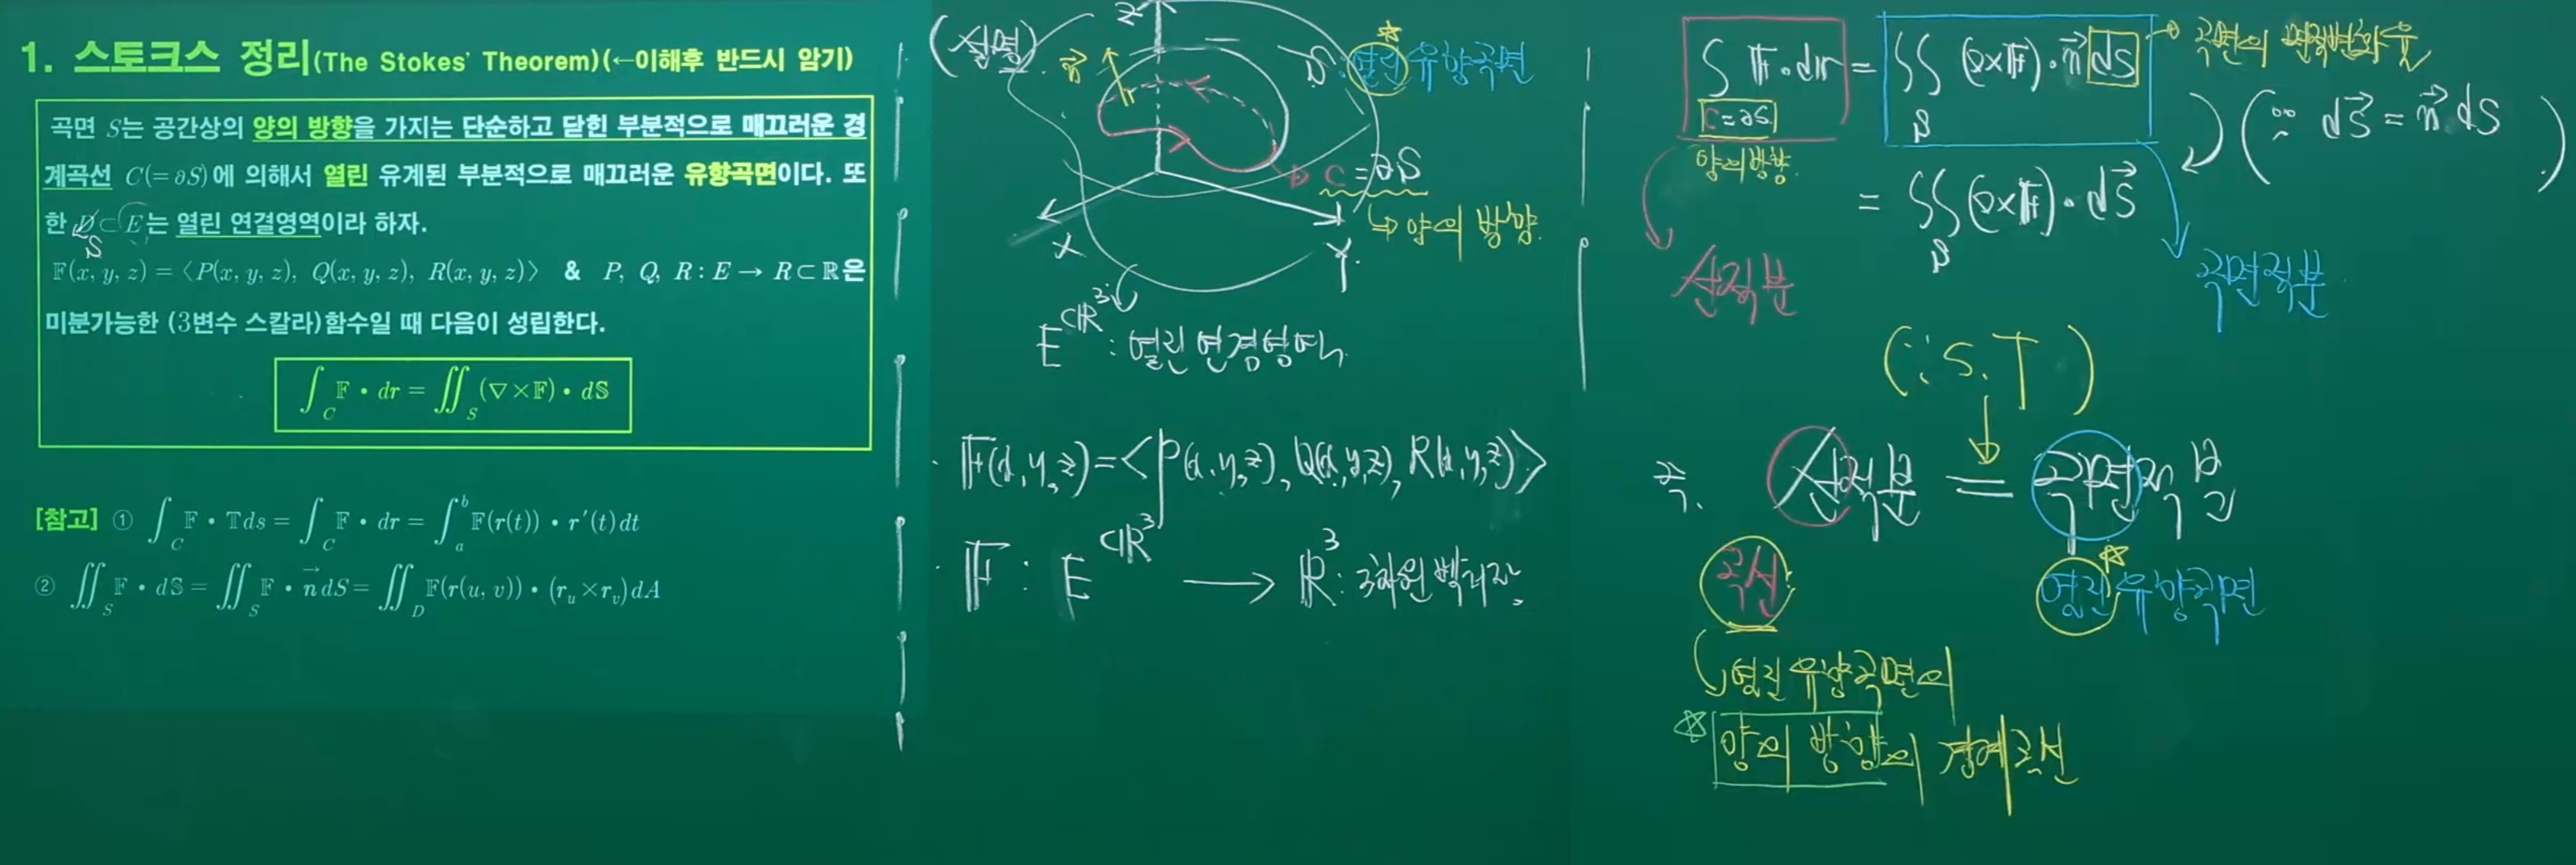 1. 스토크스 정리(The Stokes' Theorem)(←이해후 반드시 암기)
곡면 S는 공간상의 양의 방향을 가지는 단순하고 닫힌 부분적으로 매끄러운 경
계곡선 C(=∂S)에 의해서 열린 유계된 부분적으로 매끄러운 유향곡면이다. 또
한 D⊂E는 열린 연결영역이라 하자.
S
𝔽(x, y, z) = ⟨P(x, y, z), Q(x, y, z), R(x, y, z)⟩ & P, Q, R : E → R⊂ℝ은
미분가능한 (3변수 스칼라)함수일 때 다음이 성립한다.
∫_C 𝔽 • dr = ∬_S (∇×𝔽) • d𝕊
[참고] ① ∫_C 𝔽 • 𝕋ds = ∫_C 𝔽 • dr = ∫_a^b 𝔽(r(t)) • r′(t)dt
② ∬_S 𝔽 • d𝕊 = ∬_S 𝔽 • n⃗ dS = ∬_D 𝔽(r(u, v)) • (r_u×r_v)dA
(설명)
Z
n⃗
S : 열린 유향곡면
C = ∂S
↳ 양의 방향.
X
Y
E⊂ℝ³ : 열린 연결영역
· 𝔽(x, y, z) = <P(x, y, z), Q(x, y, z), R(x, y, z)>
· 𝔽 : E⊂ℝ³ → ℝ³ : 3차원 벡터장
∫_{C=∂S} 𝔽 · dr = ∬_S (∇×𝔽) · n⃗ dS → 곡면의 면적변화율
양의방향
(∵ dS⃗ = n⃗ dS)
= ∬_S (∇×𝔽) · dS⃗
선적분
곡면적분
(∵ S.T)
즉. 선적분 = 곡면적분
곡선
열린 유향곡면
열린 유향곡면의
양의 방향의 경계곡선